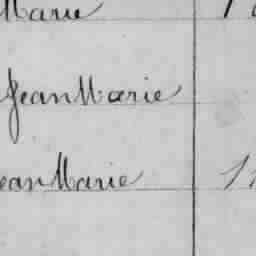 Marie
Jean Marie
Jean Marie